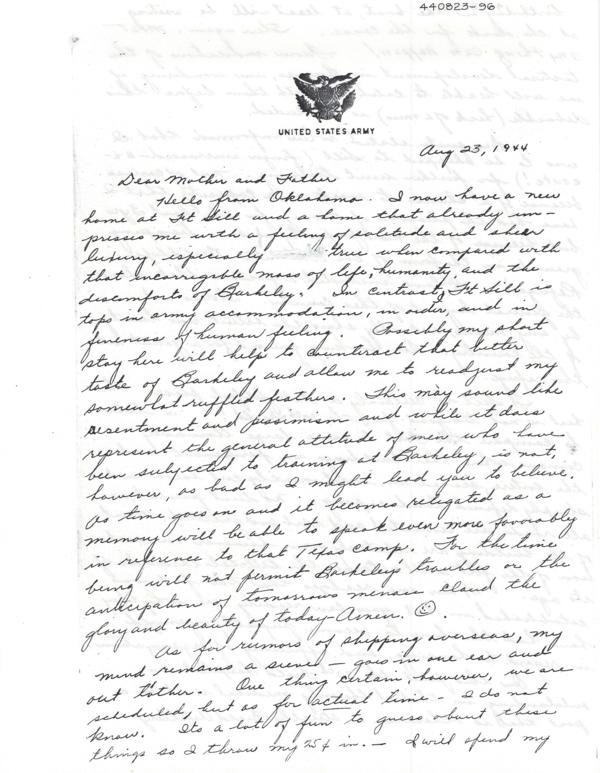 440823-96
UNITED STATES ARMY
Aug 23, 1944
Dear Mother and Father
Hello from Oklahoma. I now have a new
home at Ft Sill and a home that already im-
presses me with a feeling of solitude and shear
luxury, especially true when compared with
that incorregible mass of life, humanity, and the
discomforts of Barkeley. In contrast, Ft Sill is
tops in army accommodation, in order, and in
fineness of human feeling. Possibly my short
stay here will help to counteract that bitter
taste of Barkeley and allow me to readjust my
somewhat ruffled feathers. This may sound like
resentment and pessimism and while it does
represent the general attitude of men who have
been subjected to training at Barkeley, is not,
however, as bad as I might lead you to believe.
As time goes on and it becomes relegated as a
memory will be able to speak even more favorably
in reference to that Texas camp. For the time
being will not permit Barkeley's troubles or the
anticipation of tomorrows menace cloud the
glory and beauty of today - Amen. ☺.
As for rumors of shipping overseas, my
mind remains a sieve - goes in one ear and
out t'other. One thing certain, however, we are
scheduled, but as for actual time - I do not
know. Its a lot of fun to guess about these
things so I throw my 25¢ in. - I will spend my